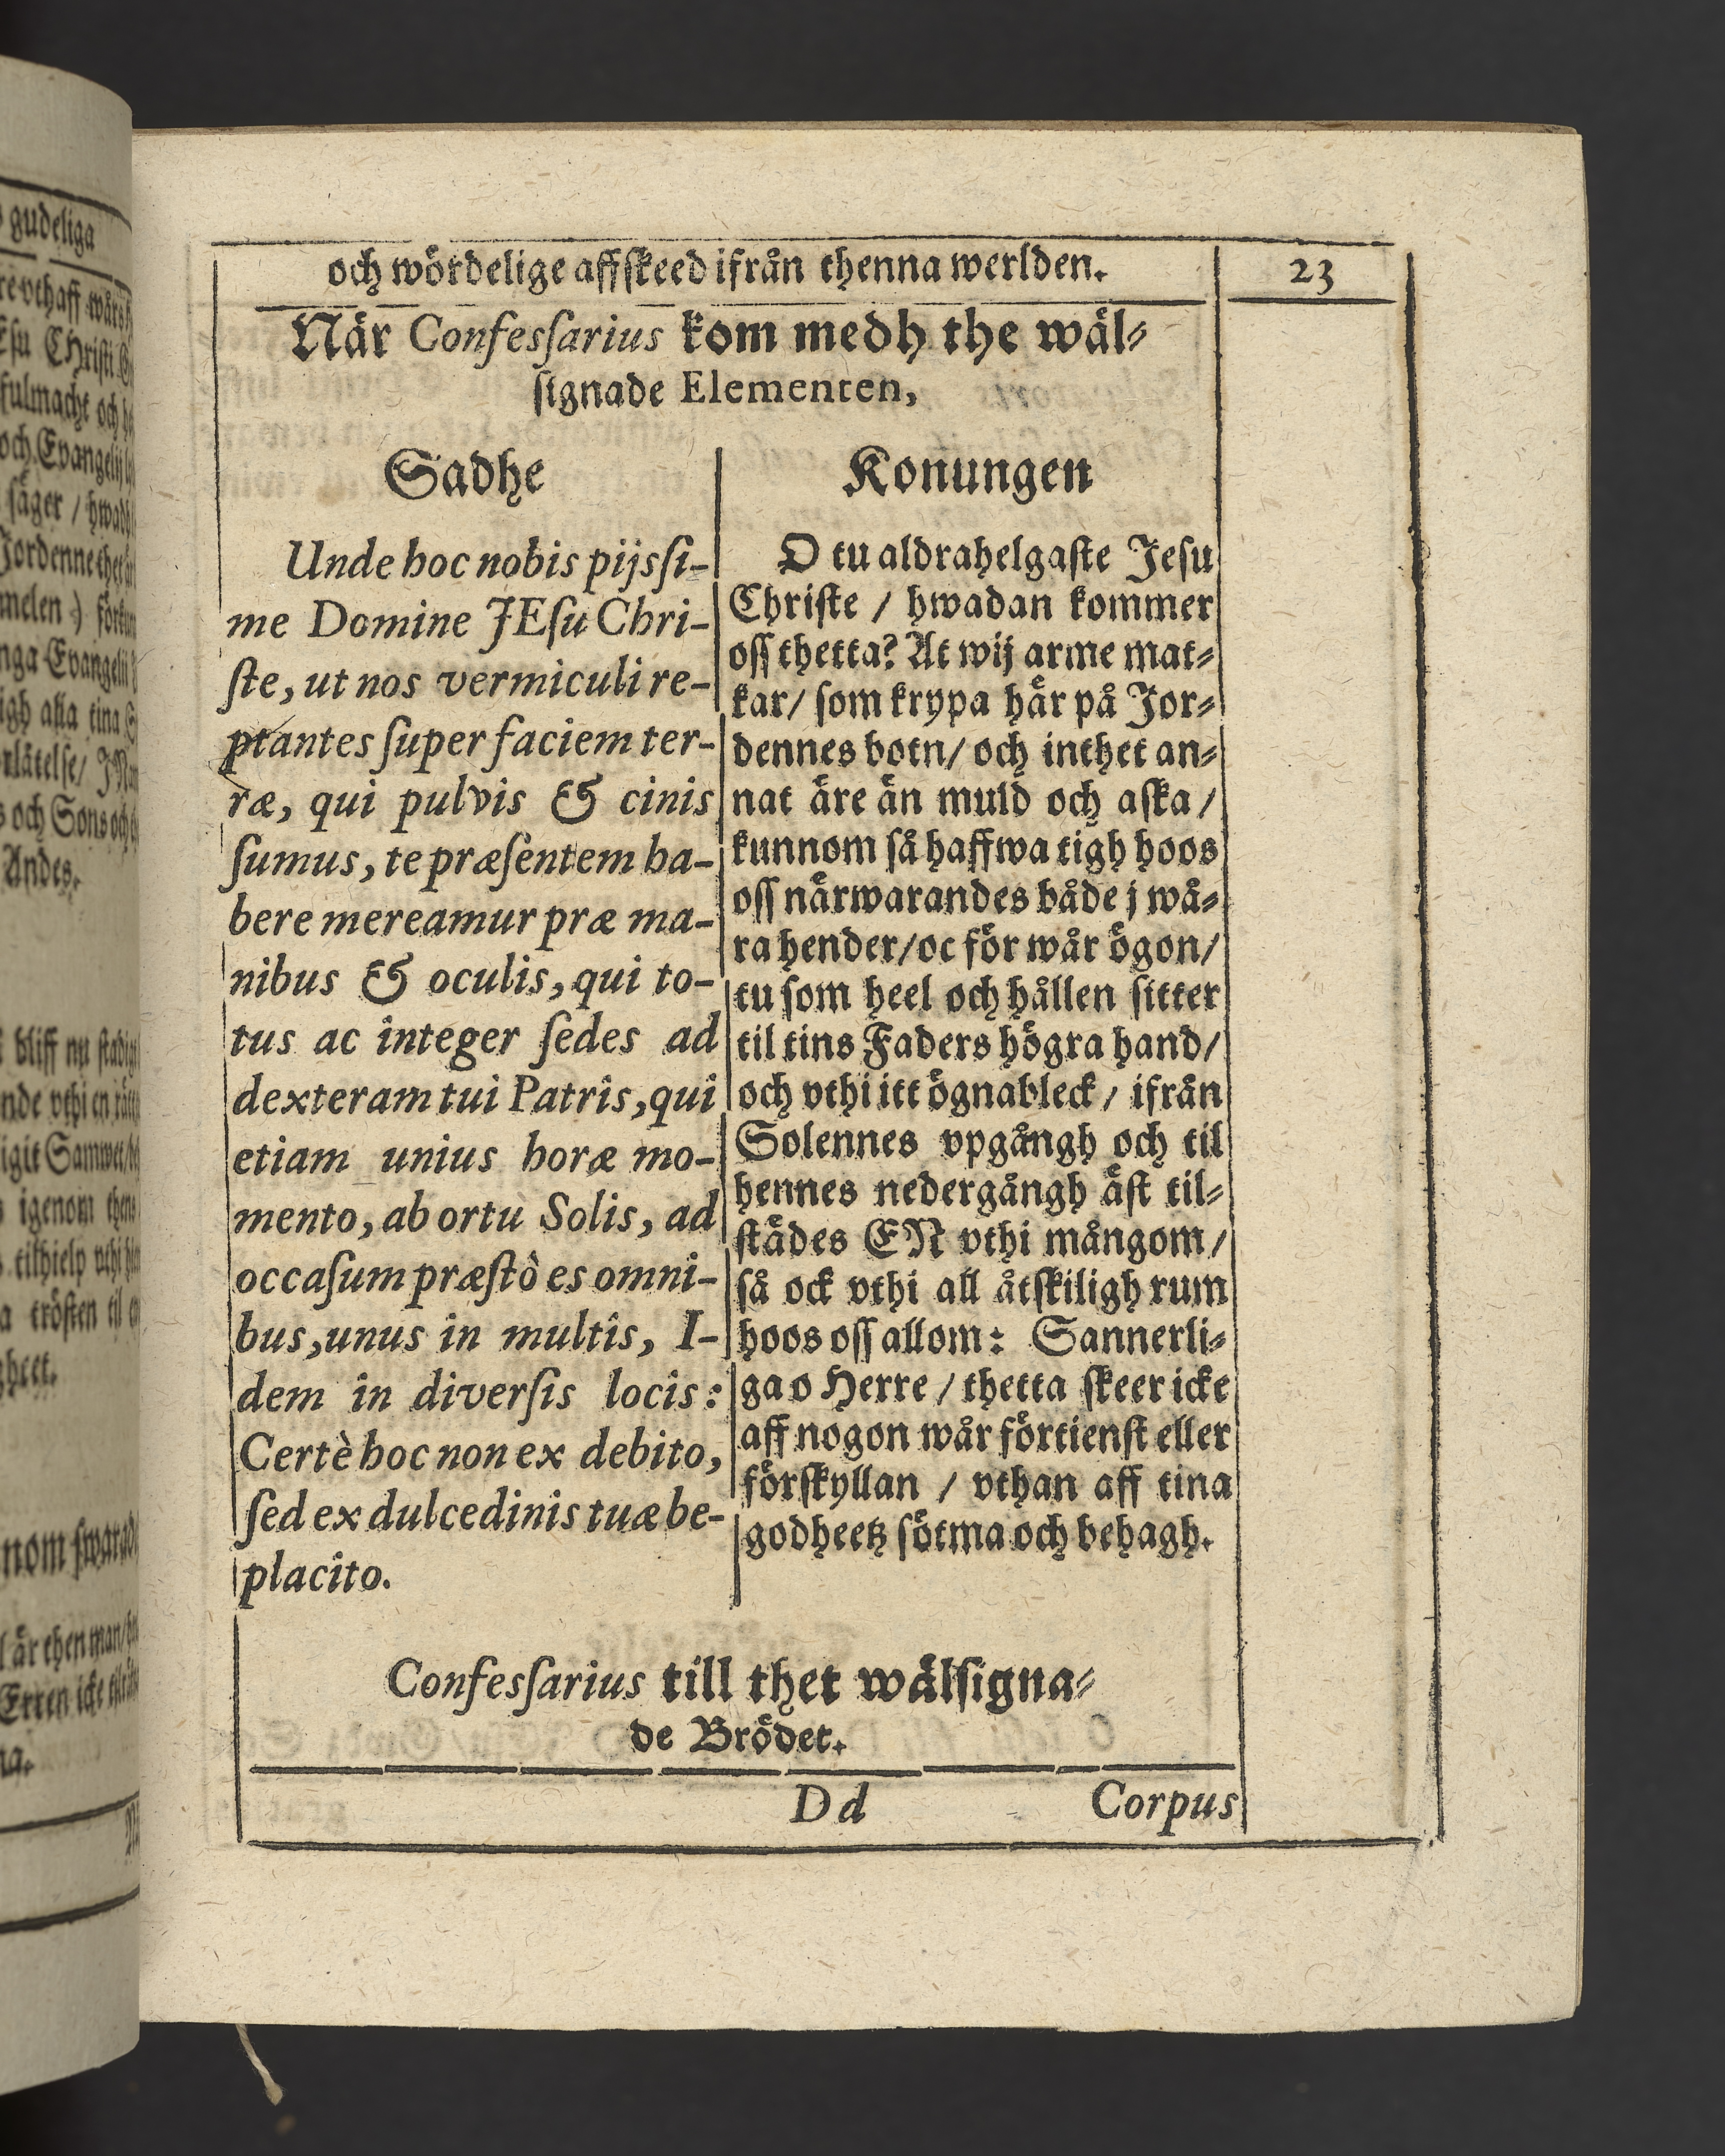 och wördelige affskeed ifrån thenna werlden.
23
När Confesſarius kom medh the wäl⸗
ſignade Elementen,
Sadhe
Unde hoc nobis pijsſi-
me Domine JEſu Chri-
ſte, ut nos vermiculi re-
ptantes ſuper faciem ter-
ræ, qui pulvis & cinis
ſumus, te præſentem ha-
bere mereamur præ ma-
nibus & oculis, qui to-
tus ac integer ſedes ad
dexteram tui Patris, qui
etiam unius horæ mo-
mento, ab ortu Solis, ad
occaſum præſtò es omni-
bus, unus in multis, I-
dem in diverſis locis:
Certè hoc non ex debito,
ſed ex dulcedinis tuæ be-
placito.
Konungen
O tu aldrahelgaſte Jeſu
Chriſte / hwadan kommer
oſſ thetta? At wij arme mat⸗
kar/ ſom krypa här på Jor⸗
dennes botn/ och inthet an⸗
nat äre än muld och aſka /
kunnom ſå haffwa tigh hoos
oſſ närwarandes både j wå⸗
ra hender/oc för wår ögon/
tu ſom heel och hållen ſitter
til tins Faders högra hand/
och vthi itt ögnableck / ifrån
Solennes vpgångh och til
hennes nedergångh äſt til⸗
ſtädes EN vthi mångom/
ſå ock vthi all åtſkiligh rum
hoos oſſ allom: Sannerli⸗
ga o Herre / thetta ſkeer icke
aff nogon wår förtienſt eller
förſkyllan / vthan aff tina
godheetz ſötma och behagh.
Confesſarius till thet wälſigna⸗
de Brödet.
Dd
Corpus